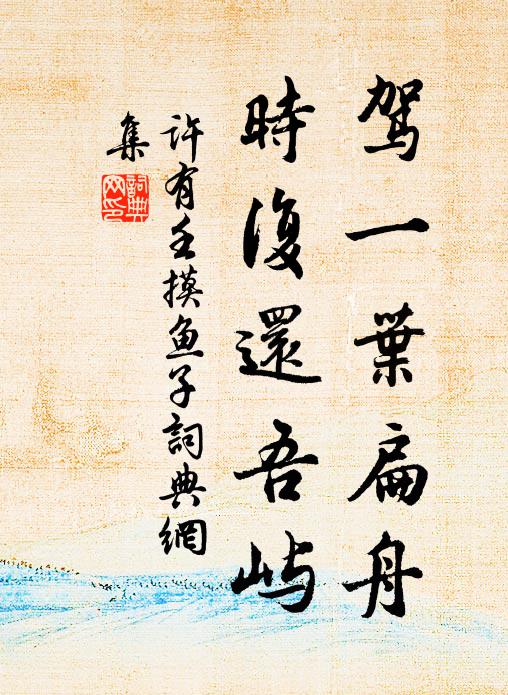 驾一葉扁舟
時復還吾屿
许有壬摸鱼子詞典網
集
詞典網印